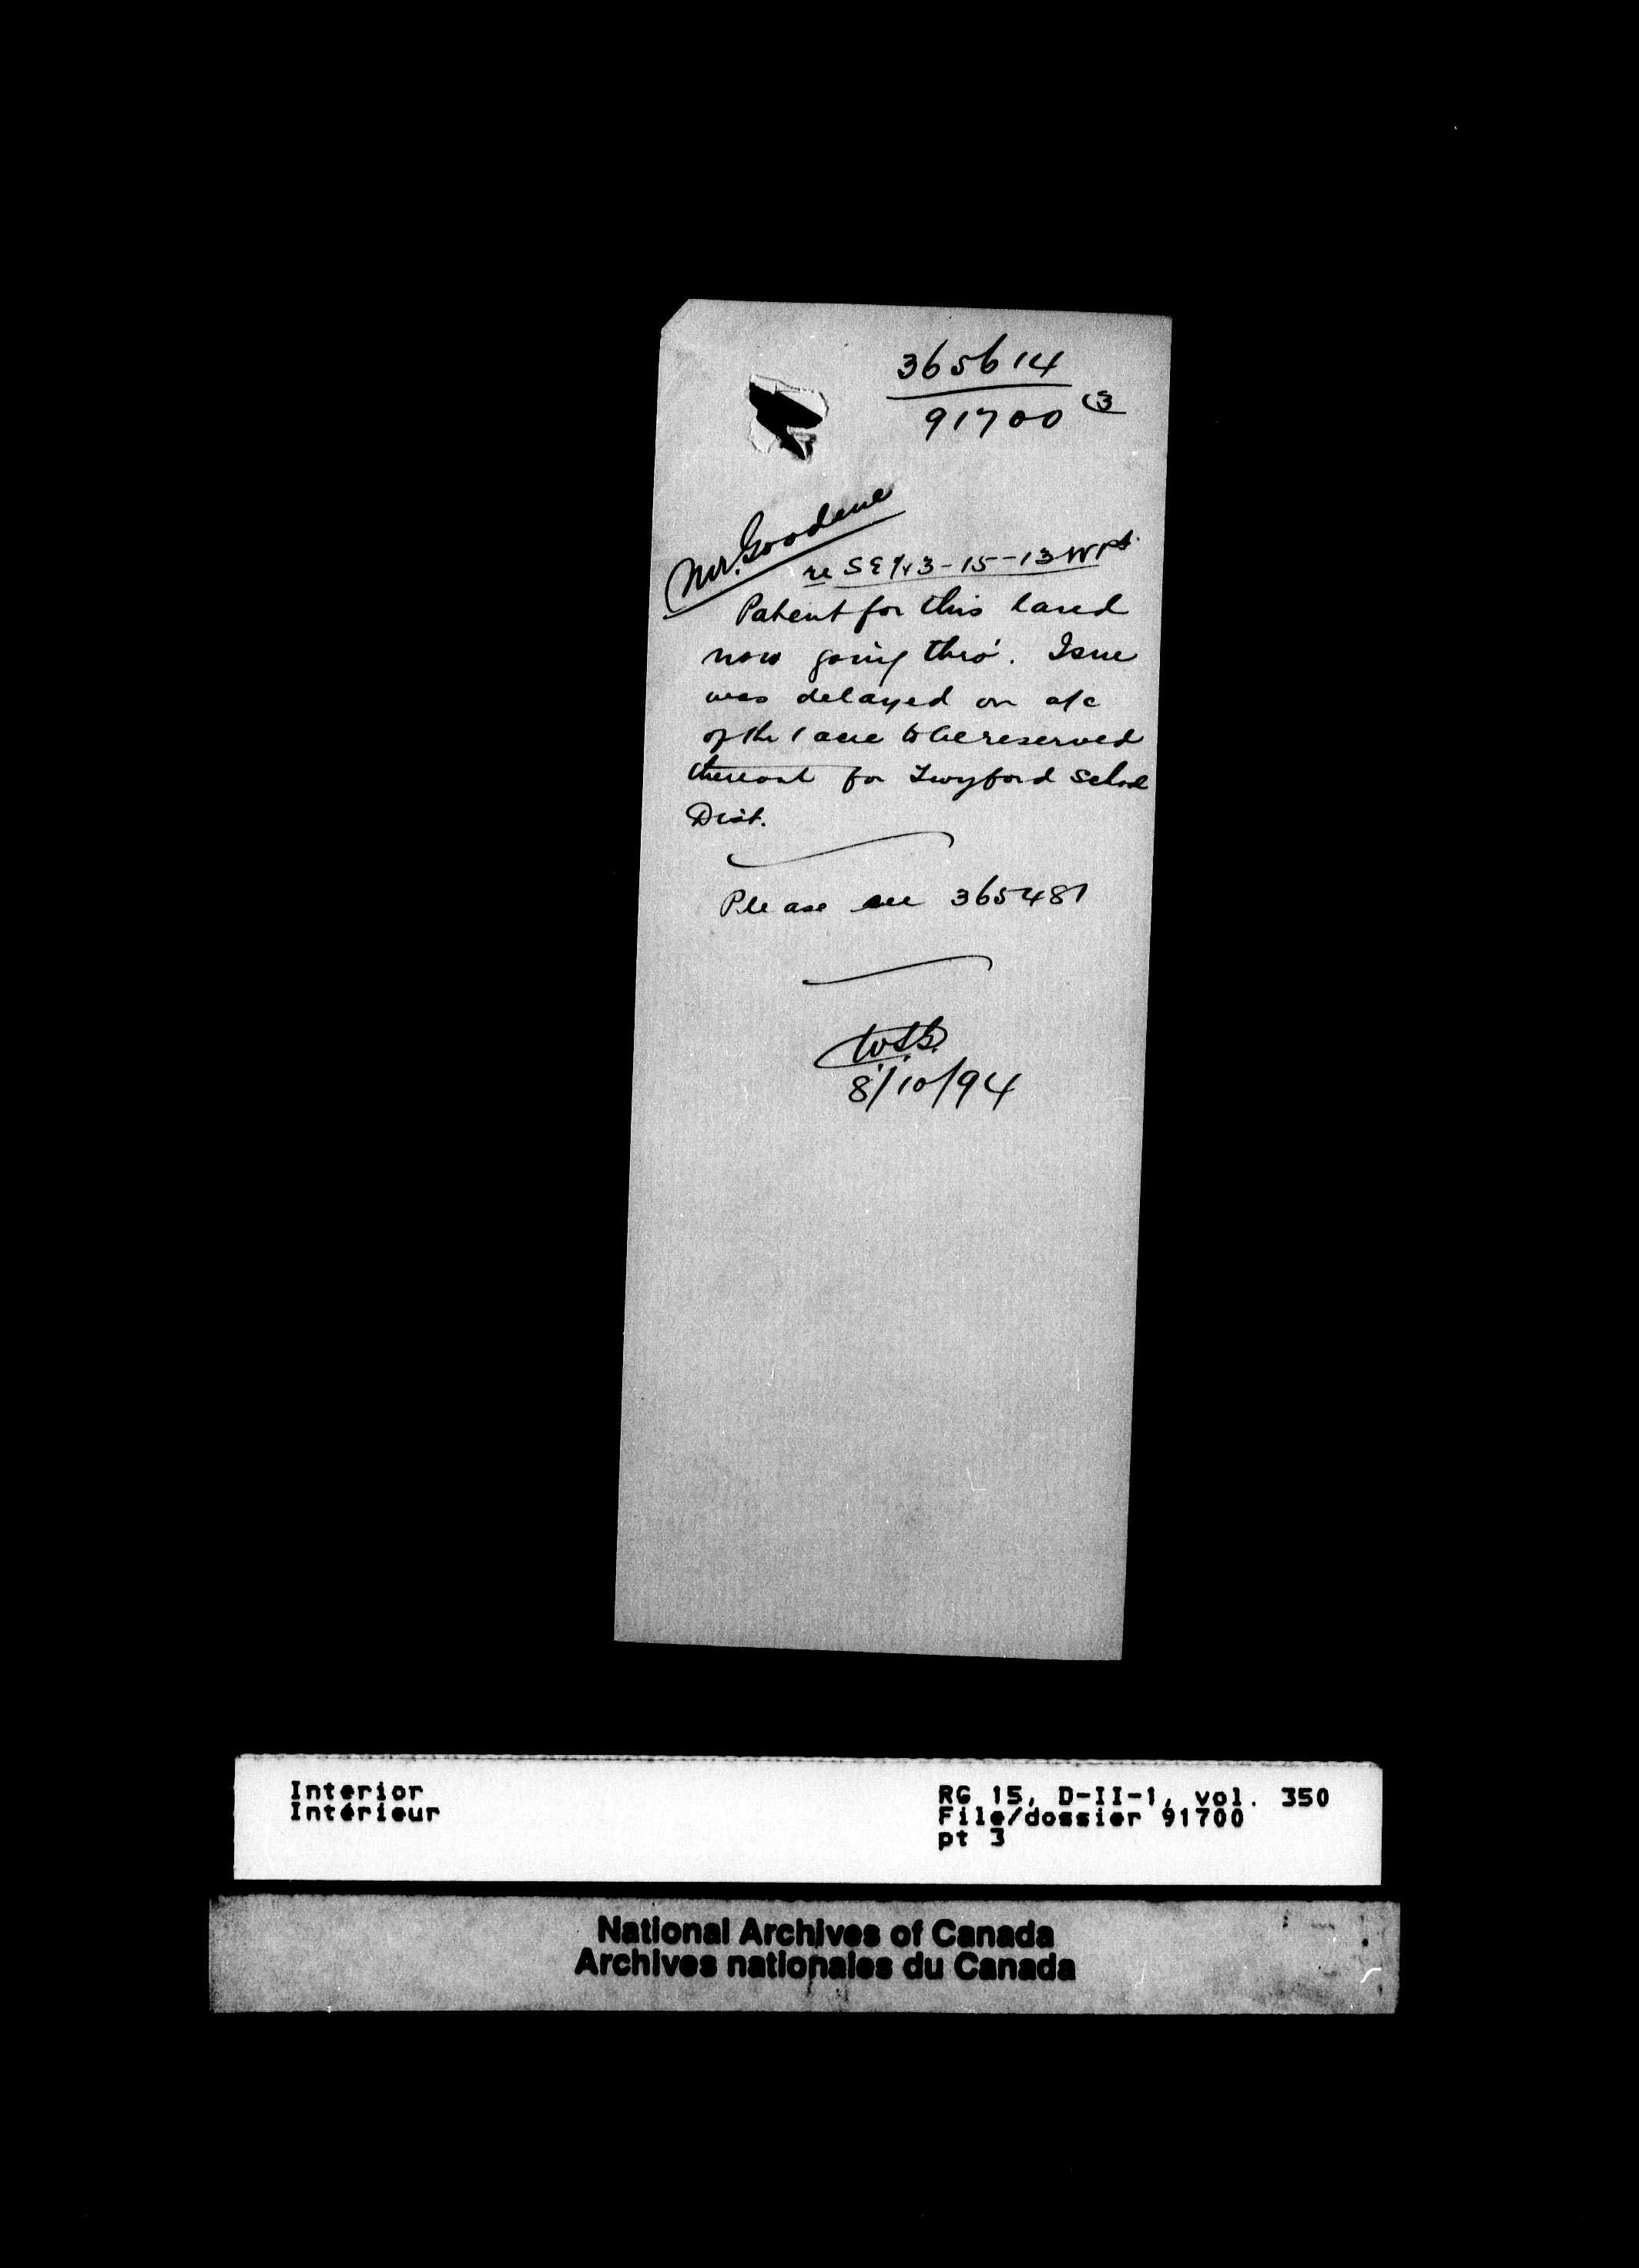 365614
91700 (3
Mr. Goodeve
re SE ¼ 3-15-13 W Pt.
Patent for this land
now going thro'. Issue
was delayed on a/c
of the 1 acre to be reserved
thereout for Twyford School
Dist.
Please see 365481
8/10/94
Interior
Intérieur
RG 15, D-II-1, vol. 350
File/dossier 91700
pt 3
National Archives of Canada
Archives nationales du Canada